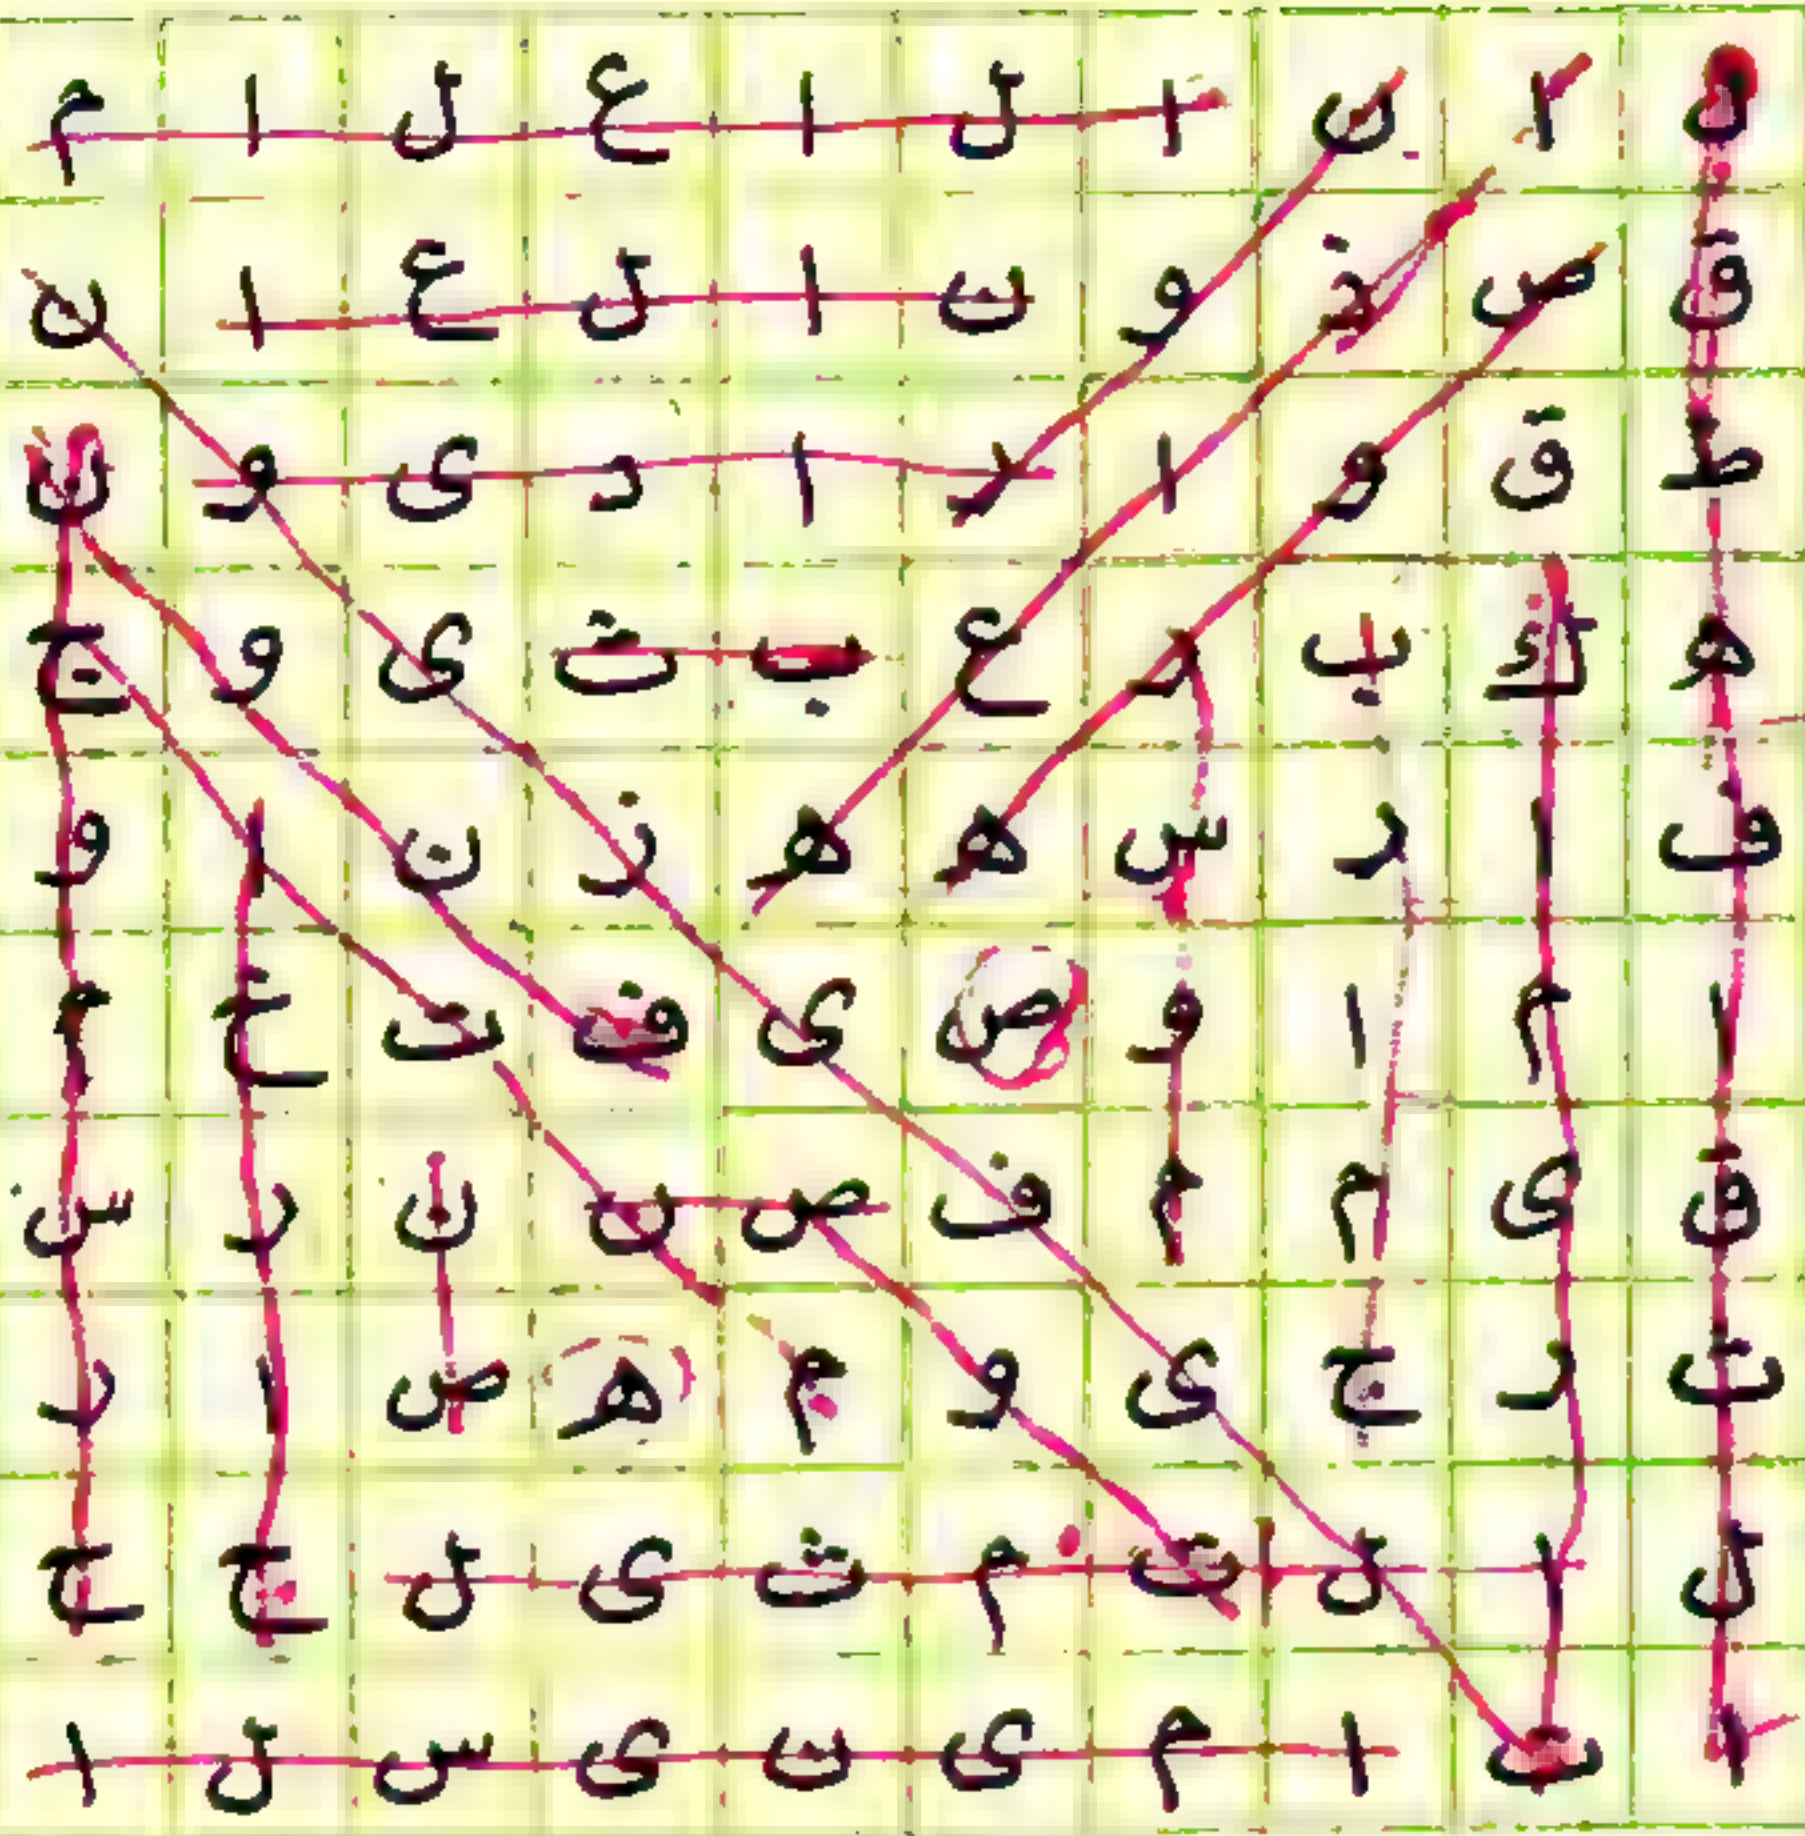 ن ا ن ا ل ا ع ل ا م
ق ص ذ و ن ا ل ع ا ن
ط ق و ا ر ا د ی و ن
ه ك ب ر ع ب ث ی و ج
ف ا ر س ه ه ز ن ا و
ا م ا و ص ی ف ت خ م
ق ی م م ف ص ن ن ر س
ت ر ج ی و م ه ص ا ر
ل ا ل ت م ث ی ل ج ح
ا ت ا م ی ن ی س ل ا